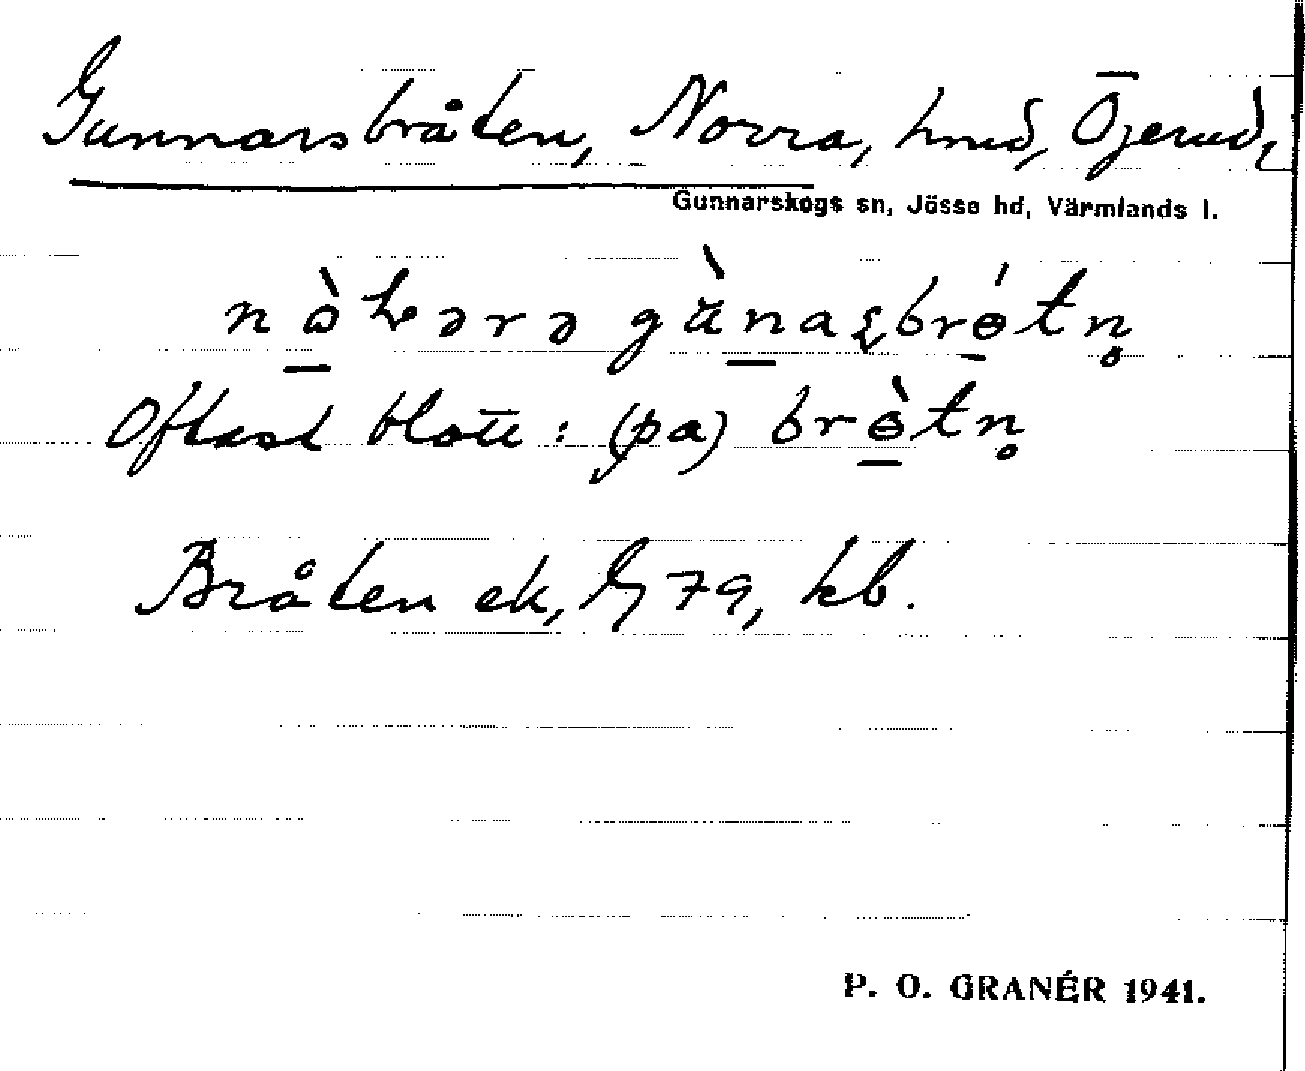 Gunnarsbråten, Norra, hmd, Öjerud,
Gunnarskogs sn, Jösse hd, Värmlands l.
gùnaʂbrétn̥
Oftast blott: (pa) brètn̥
Bråten ek, G 79, kb.
P. O. GRANÉR 1941.